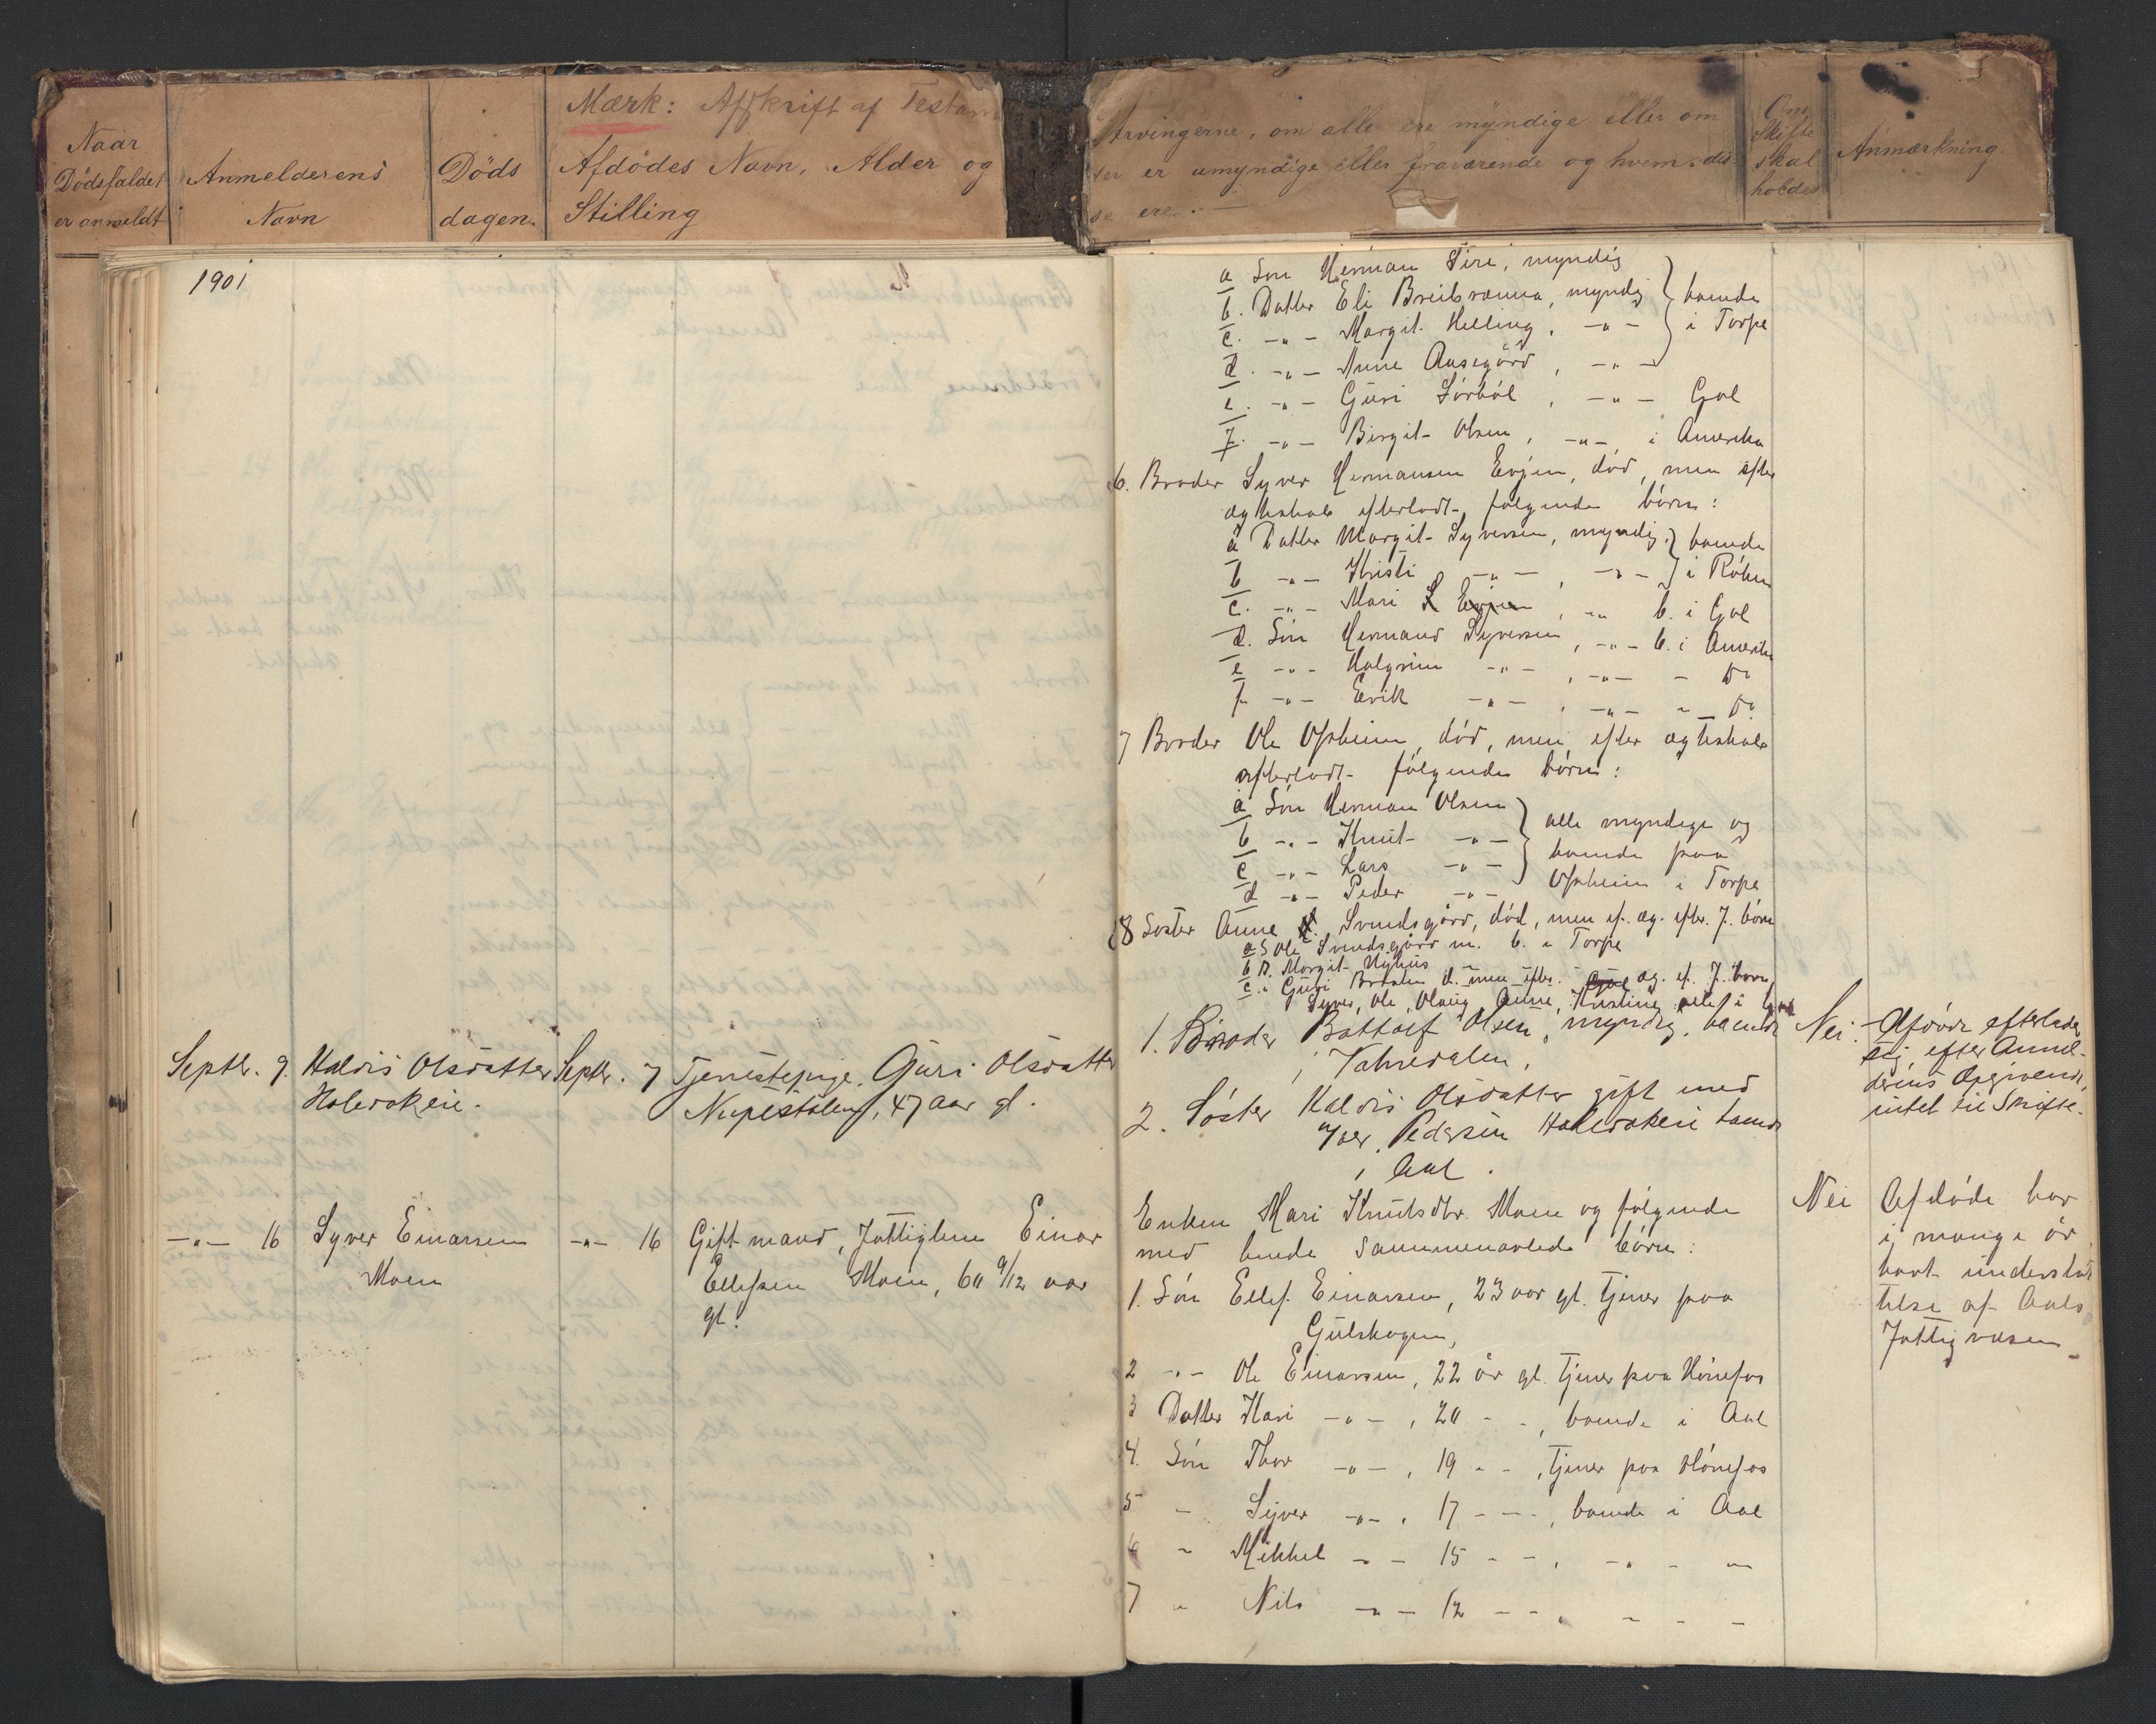 Mærk: Afskrift af Testam
Naar
Dødsfaldet
er anmeldt
Anmelderens
Navn
Døds
dagen.
Afdödes Navn, Alder og
Stilling
Arvingerne, om alle ere myndige eller om
er umyndige eller fraværende og hvem dis-
se ere.
Om
Skifte
skal
holdes
Anmærkning.
1901
a Søn Herman Tire, myndig
b. Datter Eli Breibrænna, myndig } boende
c. -"- Margit Helling, -"- } i Torpe
d. -"- Anne Aasegård, -"-
e. -"- Guri Sørbøl, -"- Gol
f. -"- Birgit Olsen, -"- i Amerika
6. Broder Syver Hermansen Evjen, död, men efter
ægteskab efterladt følgende börn:
a Datter Margit Syversen, myndig } boende
b -"- Kristi -"-, -"- } i Röken
c. -"- Mari Evjen, -"- b. i Gol
d. Sön Hermand Syversen, -"- b. i Amerika
e -"- Halgrim -"-, -"- - Do
f -"- Erik -"-, -"- - Do
7 Broder Ole Opheim, död, men efter ægteskab
efterladt følgende börn:
a Sön Herman Olsen } alle myndige og
b -"- Knut -"- } boende paa
c -"- Lars -"- } Opheim i Torpe
d -"- Peder -"-
8 Søster Anne Svendsgård, död, men ef. æg. efter. f. börn
a S Ole Svendsgård m. b. i Torpe
b D. Margit Nyhus
c " Guri Bræten d. men efter. æg. ef. f. børn
Syver, Ole, Olaug, Anne, Kristine alle i Gol
Septb. 9. Haldis Olsdatter Septb. 7 Tjenestepige, Guri Olsdatter
Holerokeie. Nupestølen, 47 aar gl.
1. Broder Bottolf Olsen, myndig, boende
i Vatsdalen,
2. Søster Haldis Olsdatter gift med
Iver Pedersen Holerokeie boende
i Aal.
Nei. Afdøde efterlader
sig efter Anmel-
derens Opgivende
intet til Skifte.
-"- 16 Syver Einarsen -"- 16 Gift mand, Fattiglem Einar
Moen Ellefsen Moen, 60 9/12 aar
gl.
Enken Mari Knutsdtr. Moen og følgende
med hende sammenavlede börn:
1. Sön Ellef Einarsen, 23 aar gl. tjener paa
Gulskogen,
2 -"- Ole Einarsen, 22 år gl. tjener paa Hönefos
3 Datter Kari -"-, 20 - -, boende i Aal
4. Sön Thor -"-, 19 - -, tjener paa Hönefos
5 - Syver -"-, 17 - -, boende i Aal
6 " Mikkel -"- 15 - -, -"- - -
7 " Nils -"- 12 - - , - - -
Nei Afdöde har
i mange år
havt understøt
telse af Aals
Fattigvæsen